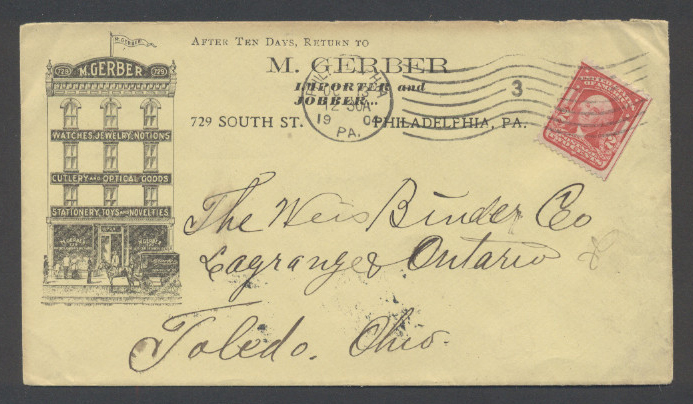 AFTER TEN DAYS, RETURN TO
M. GERBER
IMPORTER and
JOBBER...
729 SOUTH ST. PHILADELPHIA, PA.
M. GERBER
729 M. GERBER 729
WATCHES, JEWELRY, NOTIONS
CUTLERY AND OPTICAL GOODS
STATIONERY, TOYS AND NOVELTIES
12 30A
19 0
PA.
3
UNITED STATES
OF AMERICA
2 2
The Weis Binder Co
Lagrange & Ontario
Toledo. Ohio.